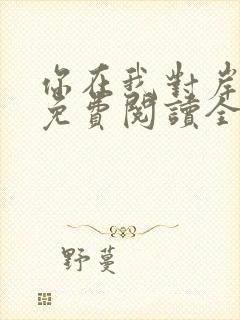 你在我對岸
免費閱讀全
野蔓